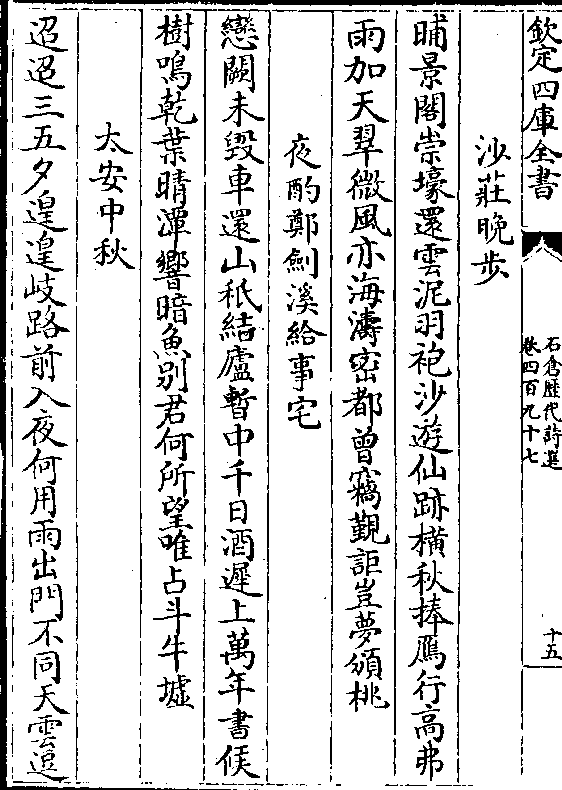 欽定四庫全書
石倉歷代詩選
卷四百九十七
十五
沙莊晚步
晡景閣崇壕還雲泥羽袍沙遊仙跡橫秋捧鴈行高弗
雨加天翠微風亦海濤密都曾竊覲詎豈夢頒桃
夜酌鄭劍溪給事宅
戀闕未毀車還山秖結廬暫中千日酒遲上萬年書候
樹鳴乾葉晴潭響暗魚别君何所望唯占斗牛墟
太安中秋
迢迢三五夕遑遑岐路前入夜何用雨出門不同天雲逗